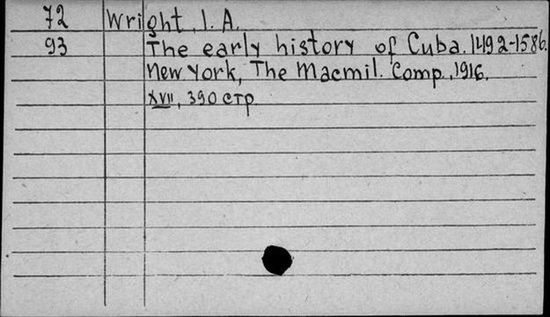 72 Wright, I. A.
93 The early history of Cuba. 1492-1586.
New York, The Macmil. Comp., 1916.
XVII, 390 стр.